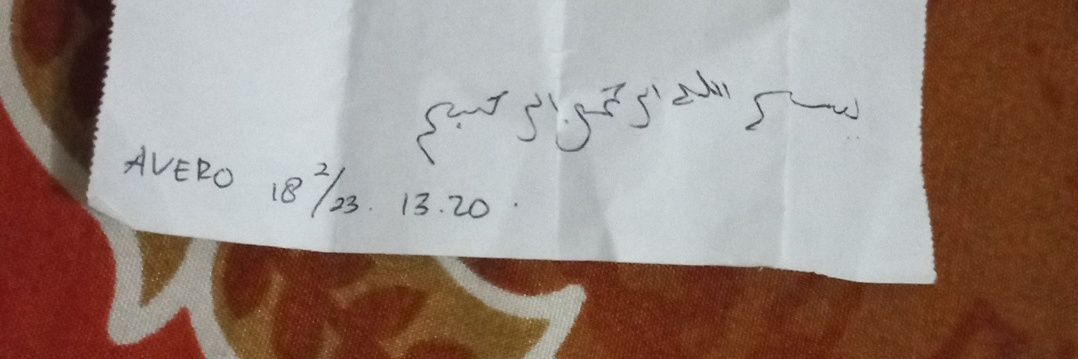 بسم الله الرحمن الرحيم
AVERO 18 2/23. 13.20.